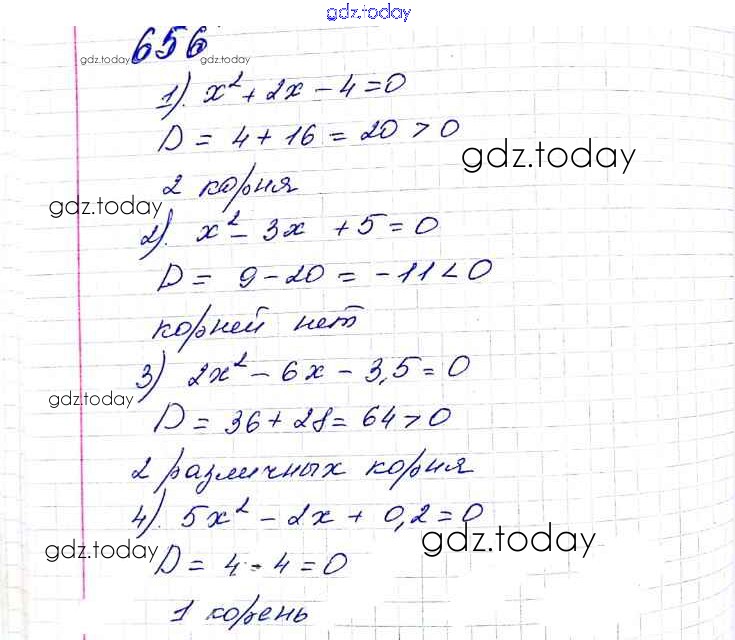 gdz.today
656
gdz.today gdz.today
1). x² + 2x - 4 = 0
D = 4 + 16 = 20 > 0
gdz.today
2 корня
gdz.today
2). x² - 3x + 5 = 0
D = 9 - 20 = -11 < 0
корней нет
3) 2x² - 6x - 3,5 = 0
gdz.today
D = 36 + 28 = 64 > 0
2 различных корня
4). 5x² - 2x + 0,2 = 0
gdz.today gdz.today
D = 4 - 4 = 0
1 корень